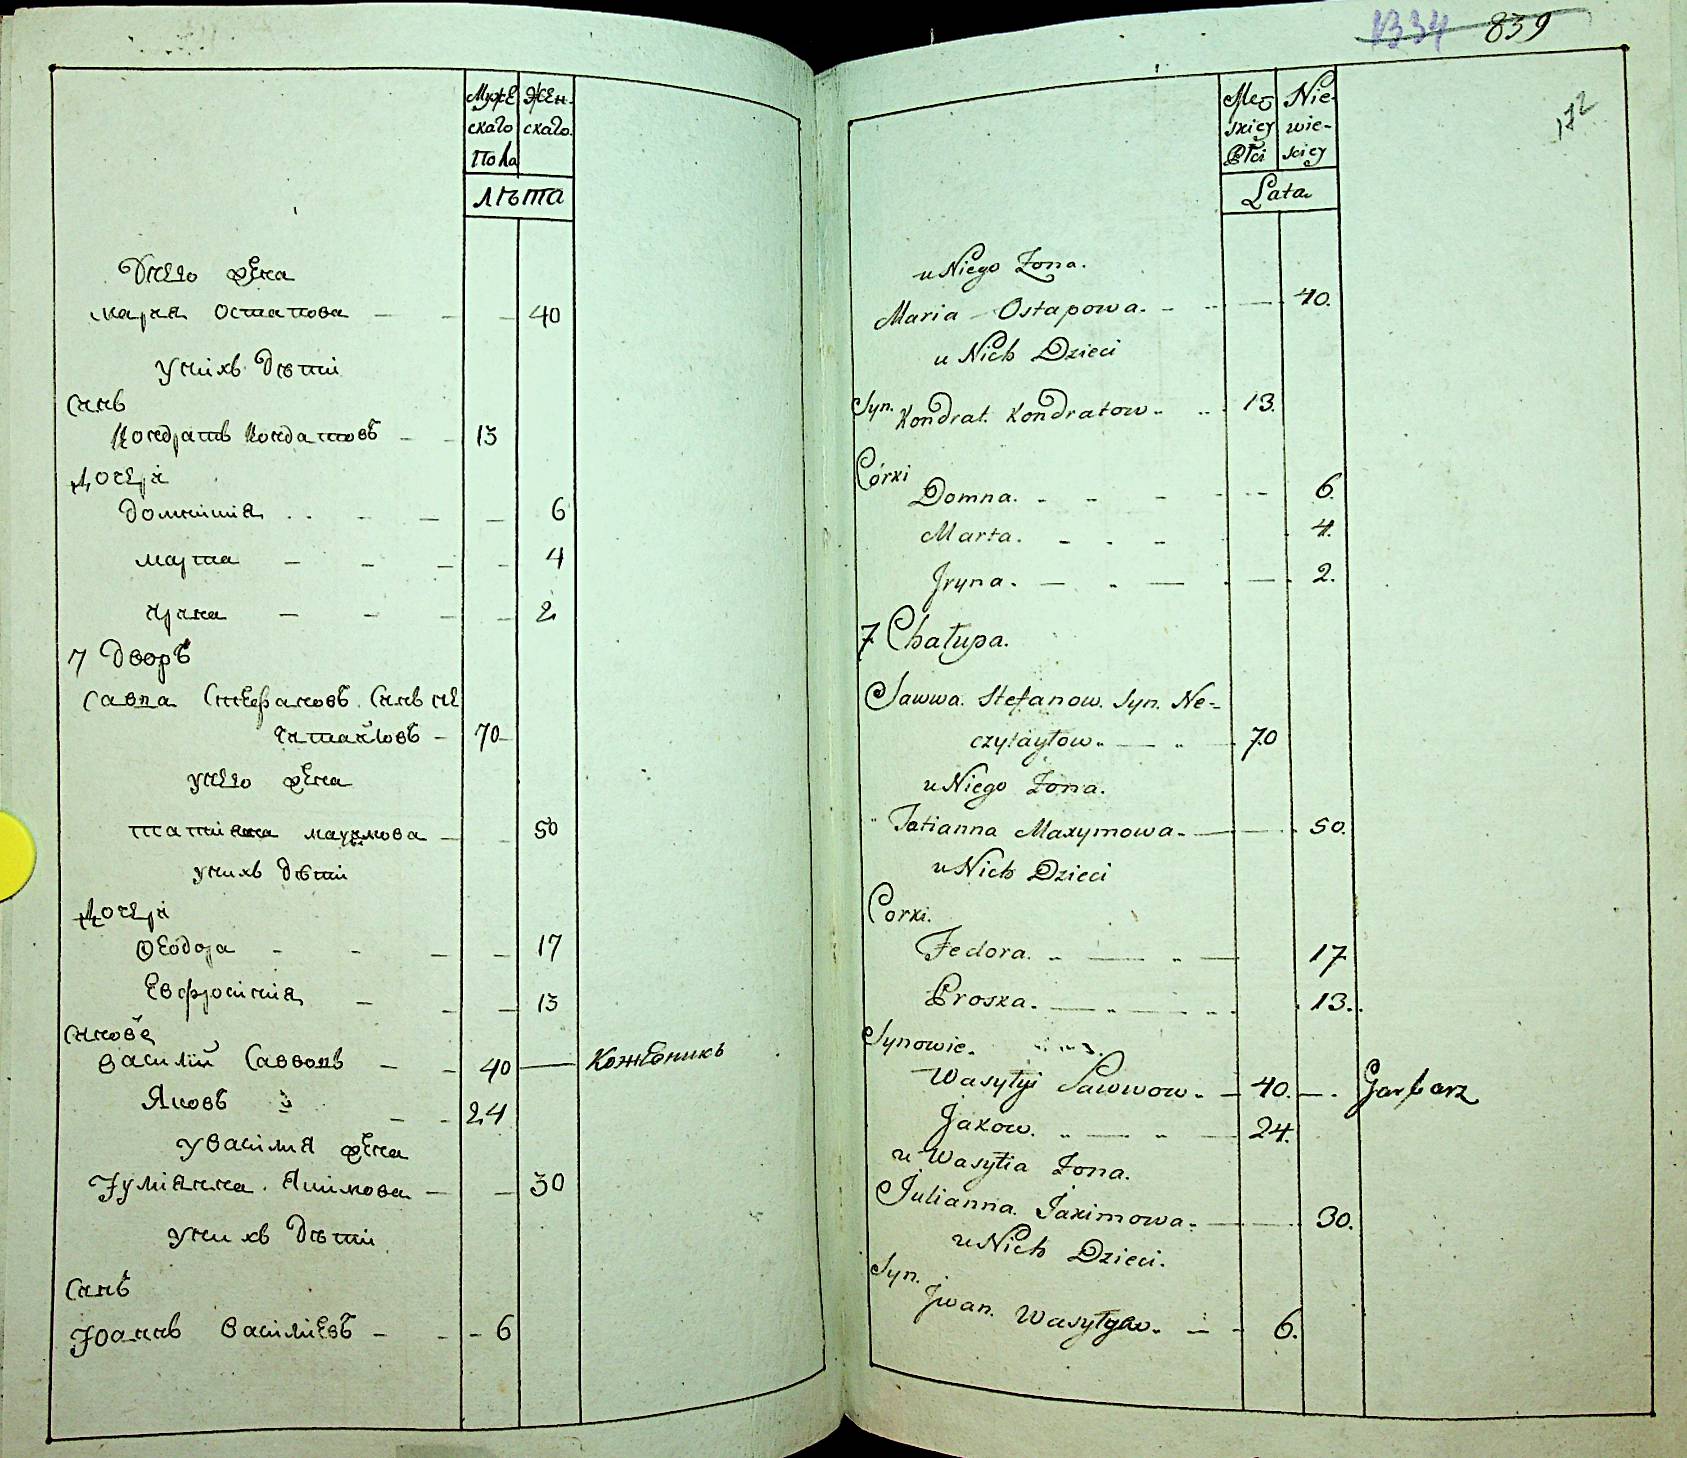 1334 839
172
Муже Жен-
скаго скаго.
Пола
лѣта
Унего жена
мария Остапова - - - 40
унихъ дѣти
Синъ
Кондратъ Кондатовъ - - 13
Дочери
Домникия . . - - - 6
марта - - - - 4
ирина - - - - - 2
7 Дворъ
Савва Стефановъ Синъ не
читайловъ - 70
унего жена
татияна максимова - 50
унихъ дѣти
Дочери
Феодора - - - - 17
Евфросиния - - - 13
Синове
Василий Саввовъ - - 40 — Кожевникъ
Яковъ - - 24
у Василия жена
Иулиянна Якимова - - 30
унихъ дѣти
Синъ
Иоаннъ Василиевъ - - - 6
Męz Nie-
skiey wie-
Płci sciey
Lata
u Niego Żona.
Maria Ostapowa. - - - 40.
u Nich Dzieci
Syn. Kondrat Kondratow. - - 13.
Córki
Domna. - - - - - 6.
Marta. - - - 4.
Jryna. - - - - 2.
7 Chałupa.
Sawwa. Stefanow. Syn. Ne-
czytayłow. - - 70
u Niego Żona.
Tatianna Maxymowa. - - 50.
u Nich Dzieci
Corki.
Fedora. - - - - 17
Proska. - - - - 13.
Synowie.
Wasylyi Sawwow. - 40. - . Garbarz
Jakow. - - - - 24.
u Wasyla Żona.
Julianna Jakimowa. - - 30.
u Nich Dzieci.
Syn.
Jwan. Wasylow. - - 6.